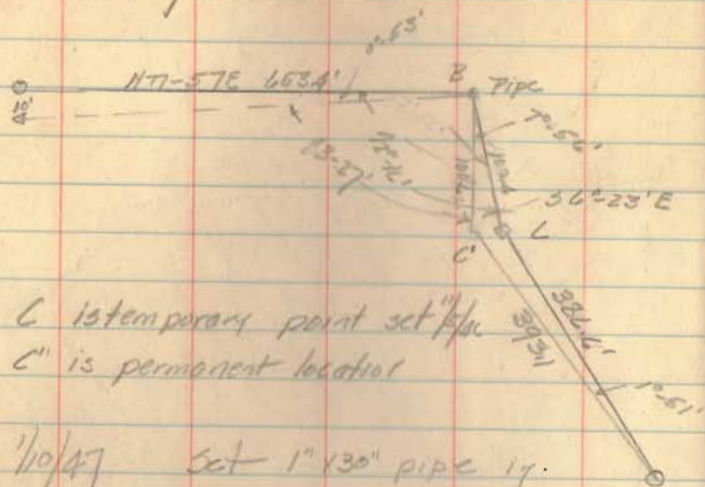 0°-53'
N77-57E 653.4'
B Pipe
10'
7°-56'
13-27'
12°-16'
S6°-23'E
C
C'
386.6'
393.1
1°-51'
C is temporary point set
C" is permanent location
1/10/47 Set 1" x 30" pipe